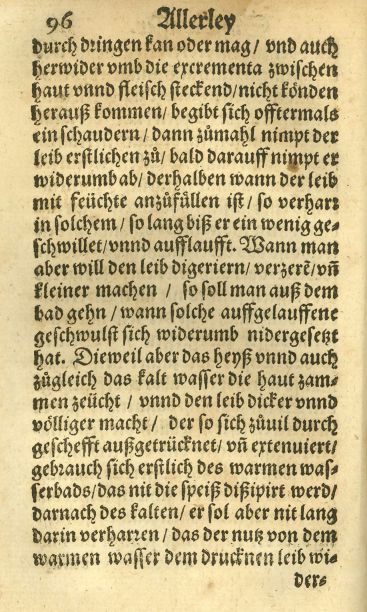 96 Allerley
durch dringen kan oder mag / vnd auch
herwider vmb die excrementa zwischen
haut vnnd fleisch steckend / nicht könden
herauß kommen / begibt sich offtermals
ein schaudern / dann zůmahl nimpt der
leib erstlichen zů / bald darauff nimpt er
widerumb ab / derhalben wann der leib
mit feüchte anzůfüllen ist / so verharz
in solchem / so lang biß er ein wenig ge⸗
schwillet / vnnd aufflaufft. Wann man
aber will den leib digeriern / verzerẽ / vñ
kleiner machen / so soll man auß dem
bad gehn / wann solche auffgelauffene
geschwulst sich widerumb nidergesetzt
hat. Dieweil aber das heyß vnnd auch
zůgleich das kalt wasser die haut zam⸗
men zeücht / vnnd den leib dicker vnnd
völliger macht / der so sich zůuil durch
geschefft außgetrücknet / vñ extenuiert /
gebrauch sich erstlich des warmen was⸗
serbads / das nit die speiß dißipirt werd /
darnach des kalten / er sol aber nit lang
darin verharren / das der nutz von dem
warmen wasser dem drucknen leib wi⸗
der⸗